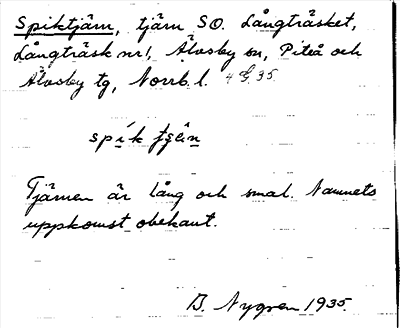 Spiktjärn, tjärn SO. Långträsket,
Långträsk nr 1, Älvsby sn, Piteå och
Älvsby tg, Norrb. l. 35
Tjärnen är lång och smal. Namnets
uppkomst obekant.
B. Nygren 1935.